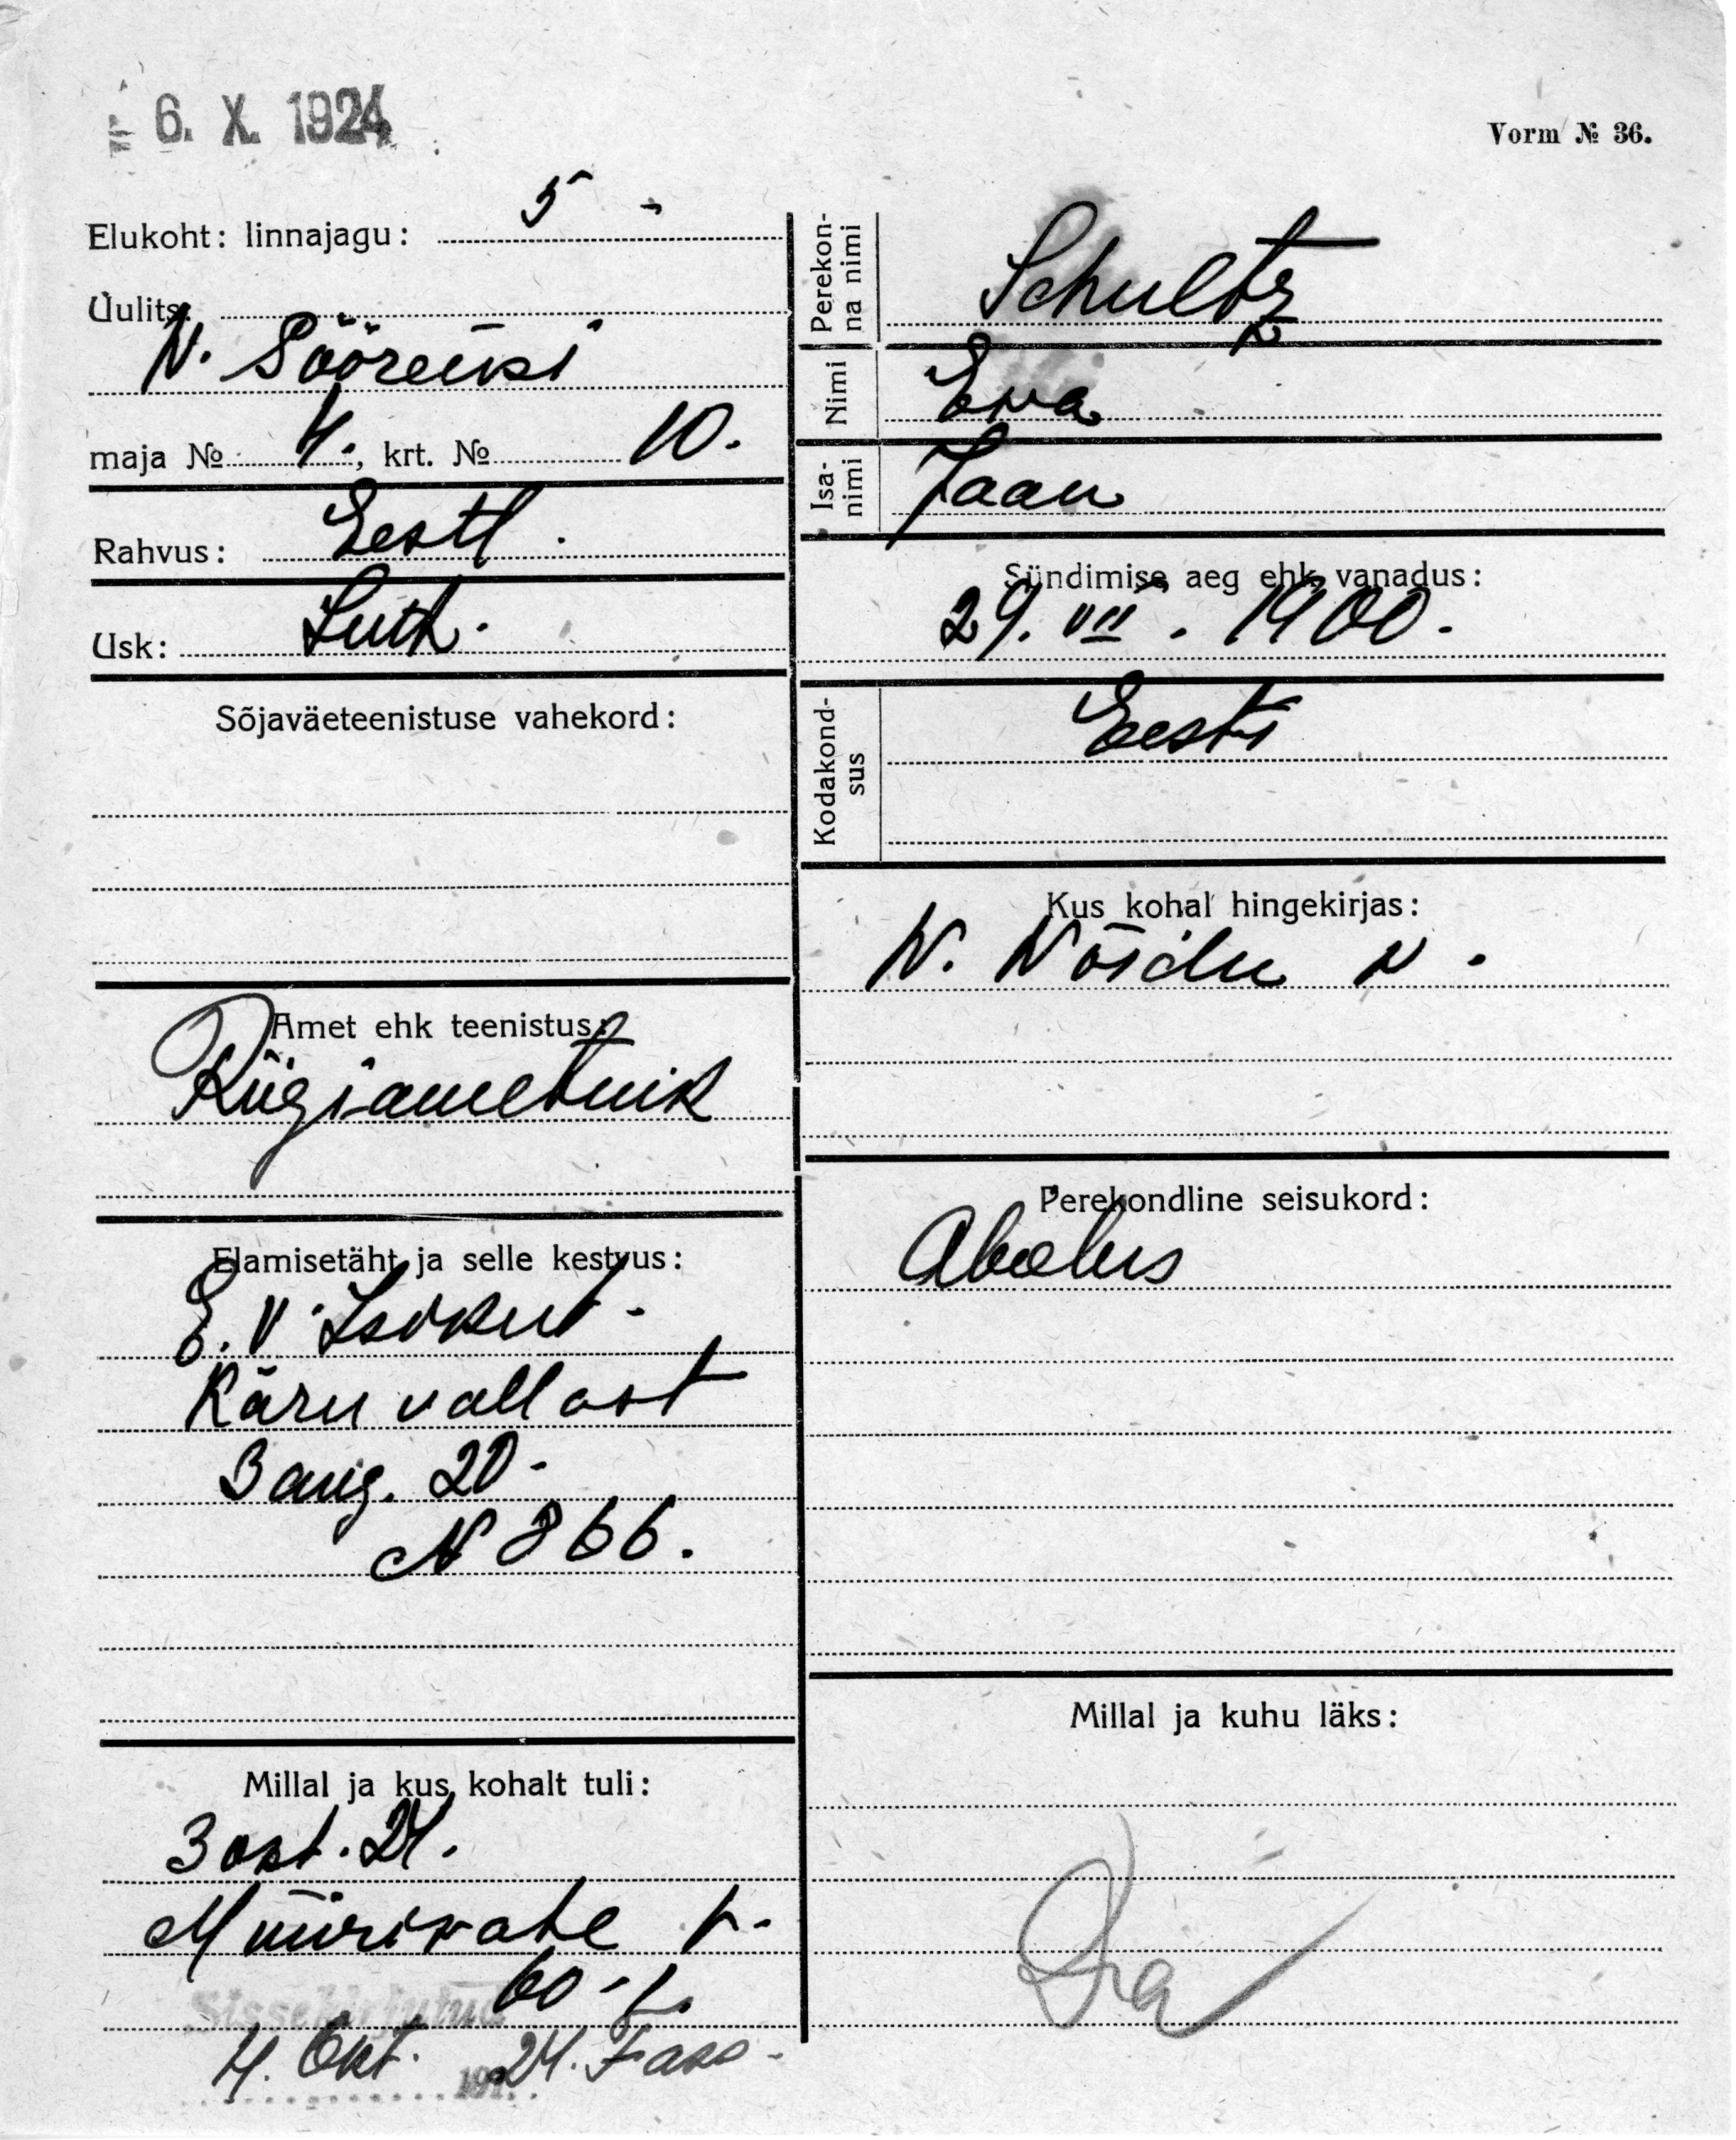 6. X. 1924
Vorm № 36.
Elukoht: linnajagu: 5 -
Uulits:
W. Sõõreiisi
maja № 4., krt. № 10.
Rahvus: Eestl.
Usk: Luth.
Sõjaväeteenistuse vahekord:
Amet ehk teenistus:
Riigiametnik
Elamisetäht ja selle kestvus:
E. V. Isikut-
Käru vallast
3 aug. 20-
N 866.
Millal ja kus kohalt tuli:
3 okt. 24.
Müüriwahe
60-1.
Sissekirjutud
4. Okt. 1924.
Perekonna nimi Schultz
Nimi Ewa
Isanimi Jaan
Sündimise aeg ehk vanadus:
29. VII. 1900.
Kodakondsus Eesti
Kus kohal hingekirjas:
W. Wõidu v.
Perekondline seisukord:
Abielus
Millal ja kuhu läks: